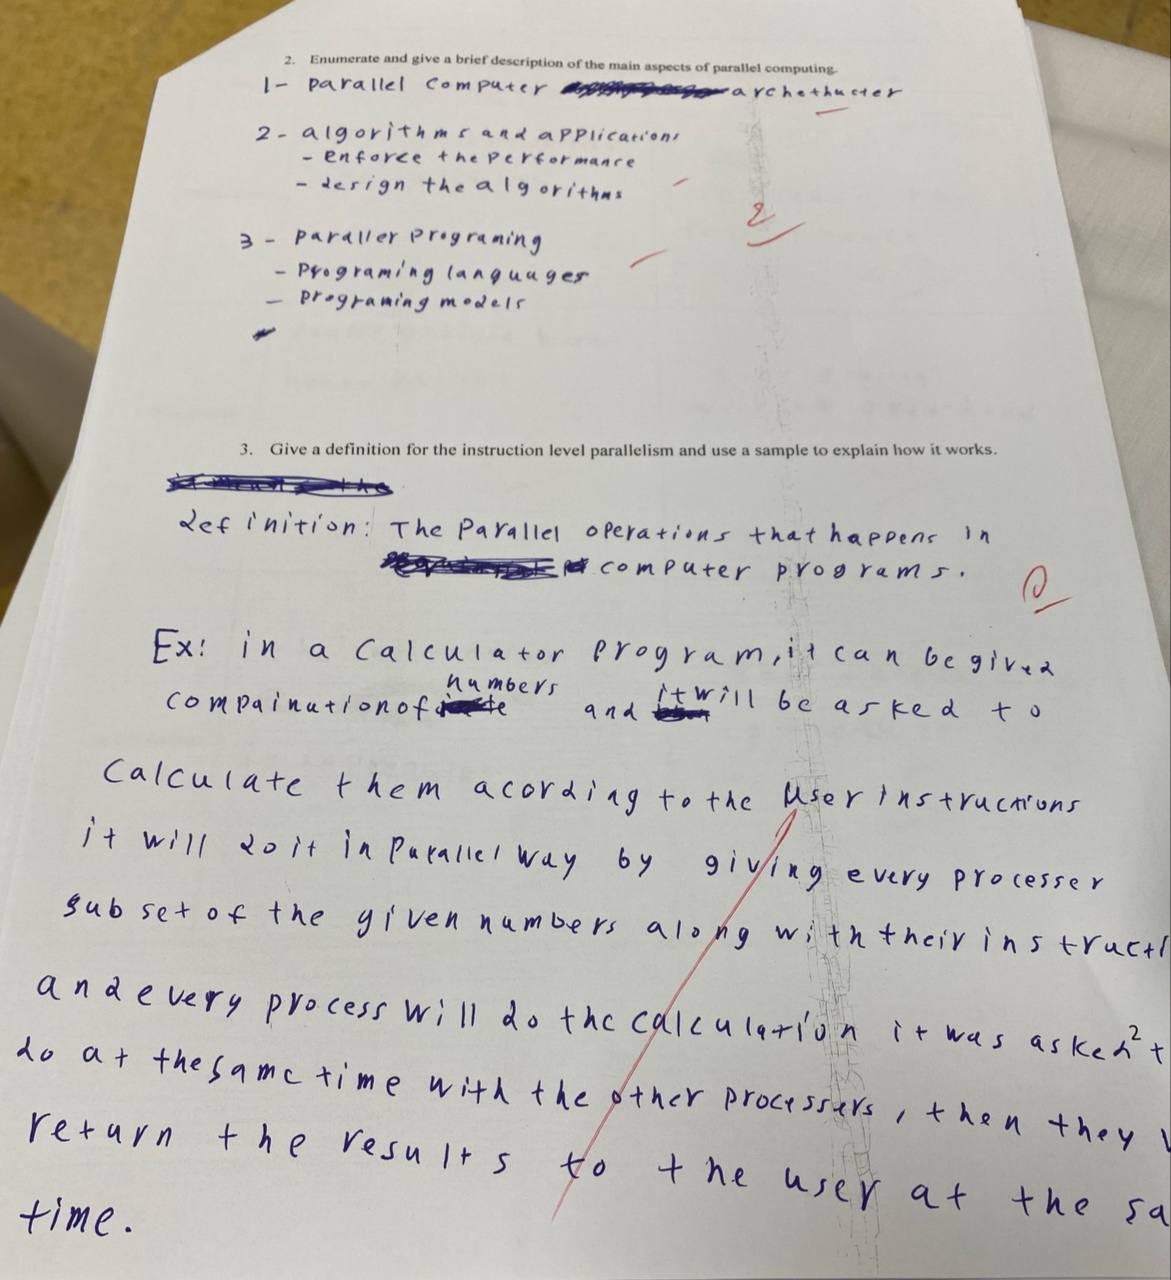 2. Enumerate and give a brief description of the main aspects of parallel computing.
1- parallel computer archethucter
2- algorithms and applications
- enforce the performance
- design the algorithms
2
3- paraller programing
- programing languages
- programing models
3. Give a definition for the instruction level parallelism and use a sample to explain how it works.
definition: The parallel operations that happens in
computer programs.
Ex: in a calculator program, it can be given
numbers
compaination of and it will be asked to
calculate them acording to the user instructions
it will do it in parallel way by giving every processer
subset of the given numbers along with their instructi
and every process will do the calculation it was asked
2
do at the same time with the other processers, then they
return the results to the user at the sa
time.